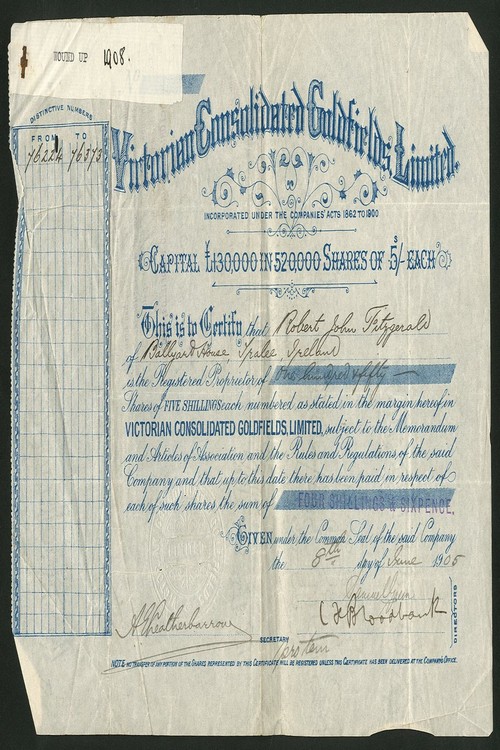 WOUND UP 1908.
DISTINCTIVE NUMBERS
FROM TO
76224 76373
Victorian Consolidated Goldfields, Limited.
INCORPORATED UNDER THE COMPANIES' ACTS 1862 TO 1900
CAPITAL £130,000 IN 520,000 SHARES OF 5/- EACH
This is to Certify that Robert John Fitzgerald
of Ballyard House, Tralee, Ireland
is the Registered Proprietor of One hundred & fifty —
Shares of FIVE SHILLINGS each numbered as stated in the margin hereof in
VICTORIAN CONSOLIDATED GOLDFIELDS, LIMITED, subject to the Memorandum
and Articles of Association and the Rules and Regulations of the said
Company and that up to this date there has been paid in respect of
each of such shares the sum of FOUR SHILLINGS & SIXPENCE,
GIVEN under the Common Seal of the said Company
the 8th day of June 1905
Broadbank
DIRECTORS
SECRETARY
pro tem
NOTE NO TRANSFER OF ANY PORTION OF THE SHARES REPRESENTED BY THIS CERTIFICATE WILL BE REGISTERED UNLESS THIS CERTIFICATE HAS BEEN DELIVERED AT THE COMPANY'S OFFICE.